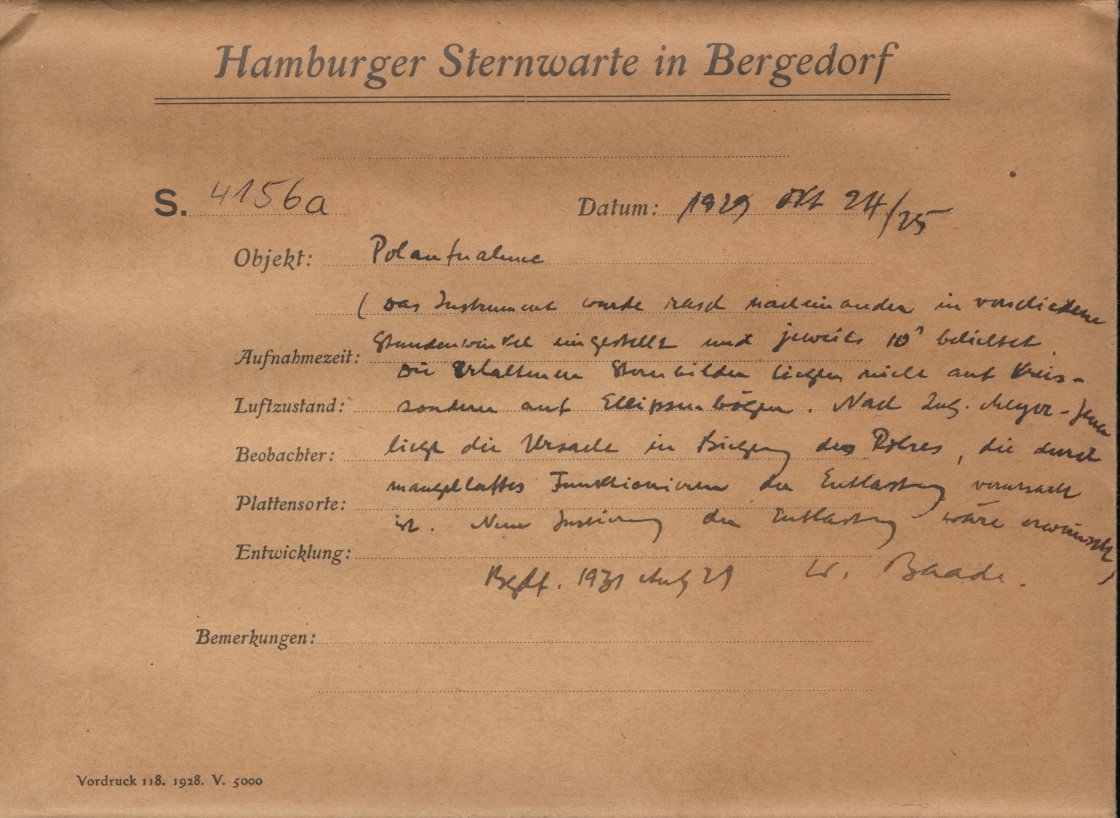 Hamburger Sternwarte in Bergedorf
S. 4156a Datum: 1929 Okt 24/25
Objekt: Polaufnahme
(Das Instrument wurde rasch nacheinander in verschiedene
Stundenwinkel eingestellt und jeweils 10ˢ belichtet
Aufnahmezeit:
Die erhaltenen Sternbilder liegen nicht auf Kreis-
Luftzustand: sondern auf Ellipsenbögen. Nach Ing. Meyer-Jena
Beobachter: liegt die Ursache in Biegung des Rohres, die durch
Plattensorte: mangelhaftes Funktionieren der Entlastung verursacht
ist. Neue Justierung der Entlastung wäre erwünscht)
Entwicklung:
Bgdf. 1931 Aug 29 W. Baade.
Bemerkungen:
Vordruck 118. 1928. V. 5000